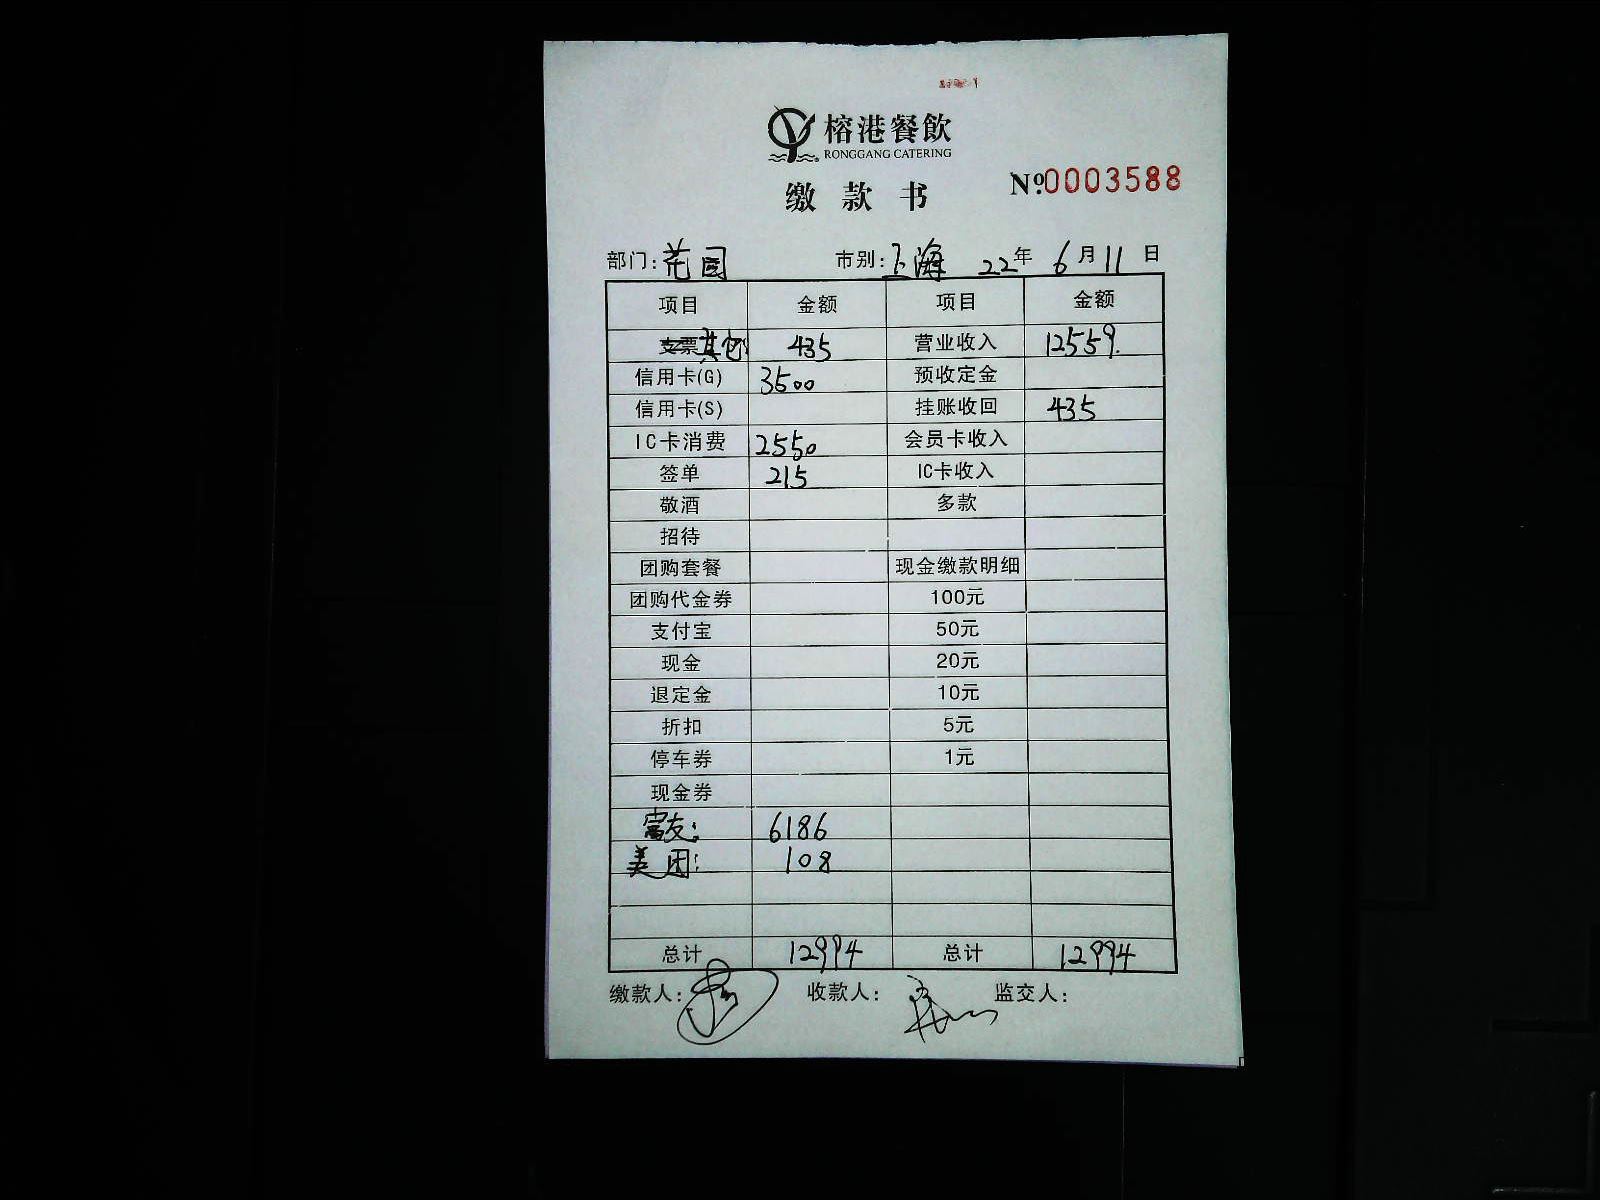 榕港餐飲
RONGGANG CATERING
缴款书
№0003588
部门:花园 市别:上海 22年6月11日
项目 金额 项目 金额
支票其它: 435 营业收入 12559.
信用卡(G) 3500 预收定金
信用卡(S) 挂账收回 435
IC卡消费 2550 会员卡收入
签单 215 IC卡收入
敬酒 多款
招待
团购套餐 现金缴款明细
团购代金券 100元
支付宝 50元
现金 20元
退定金 10元
折扣 5元
停车券 1元
现金券
富友: 6186
美团: 108
总计 12994 总计 12994
缴款人: 收款人: 监交人: